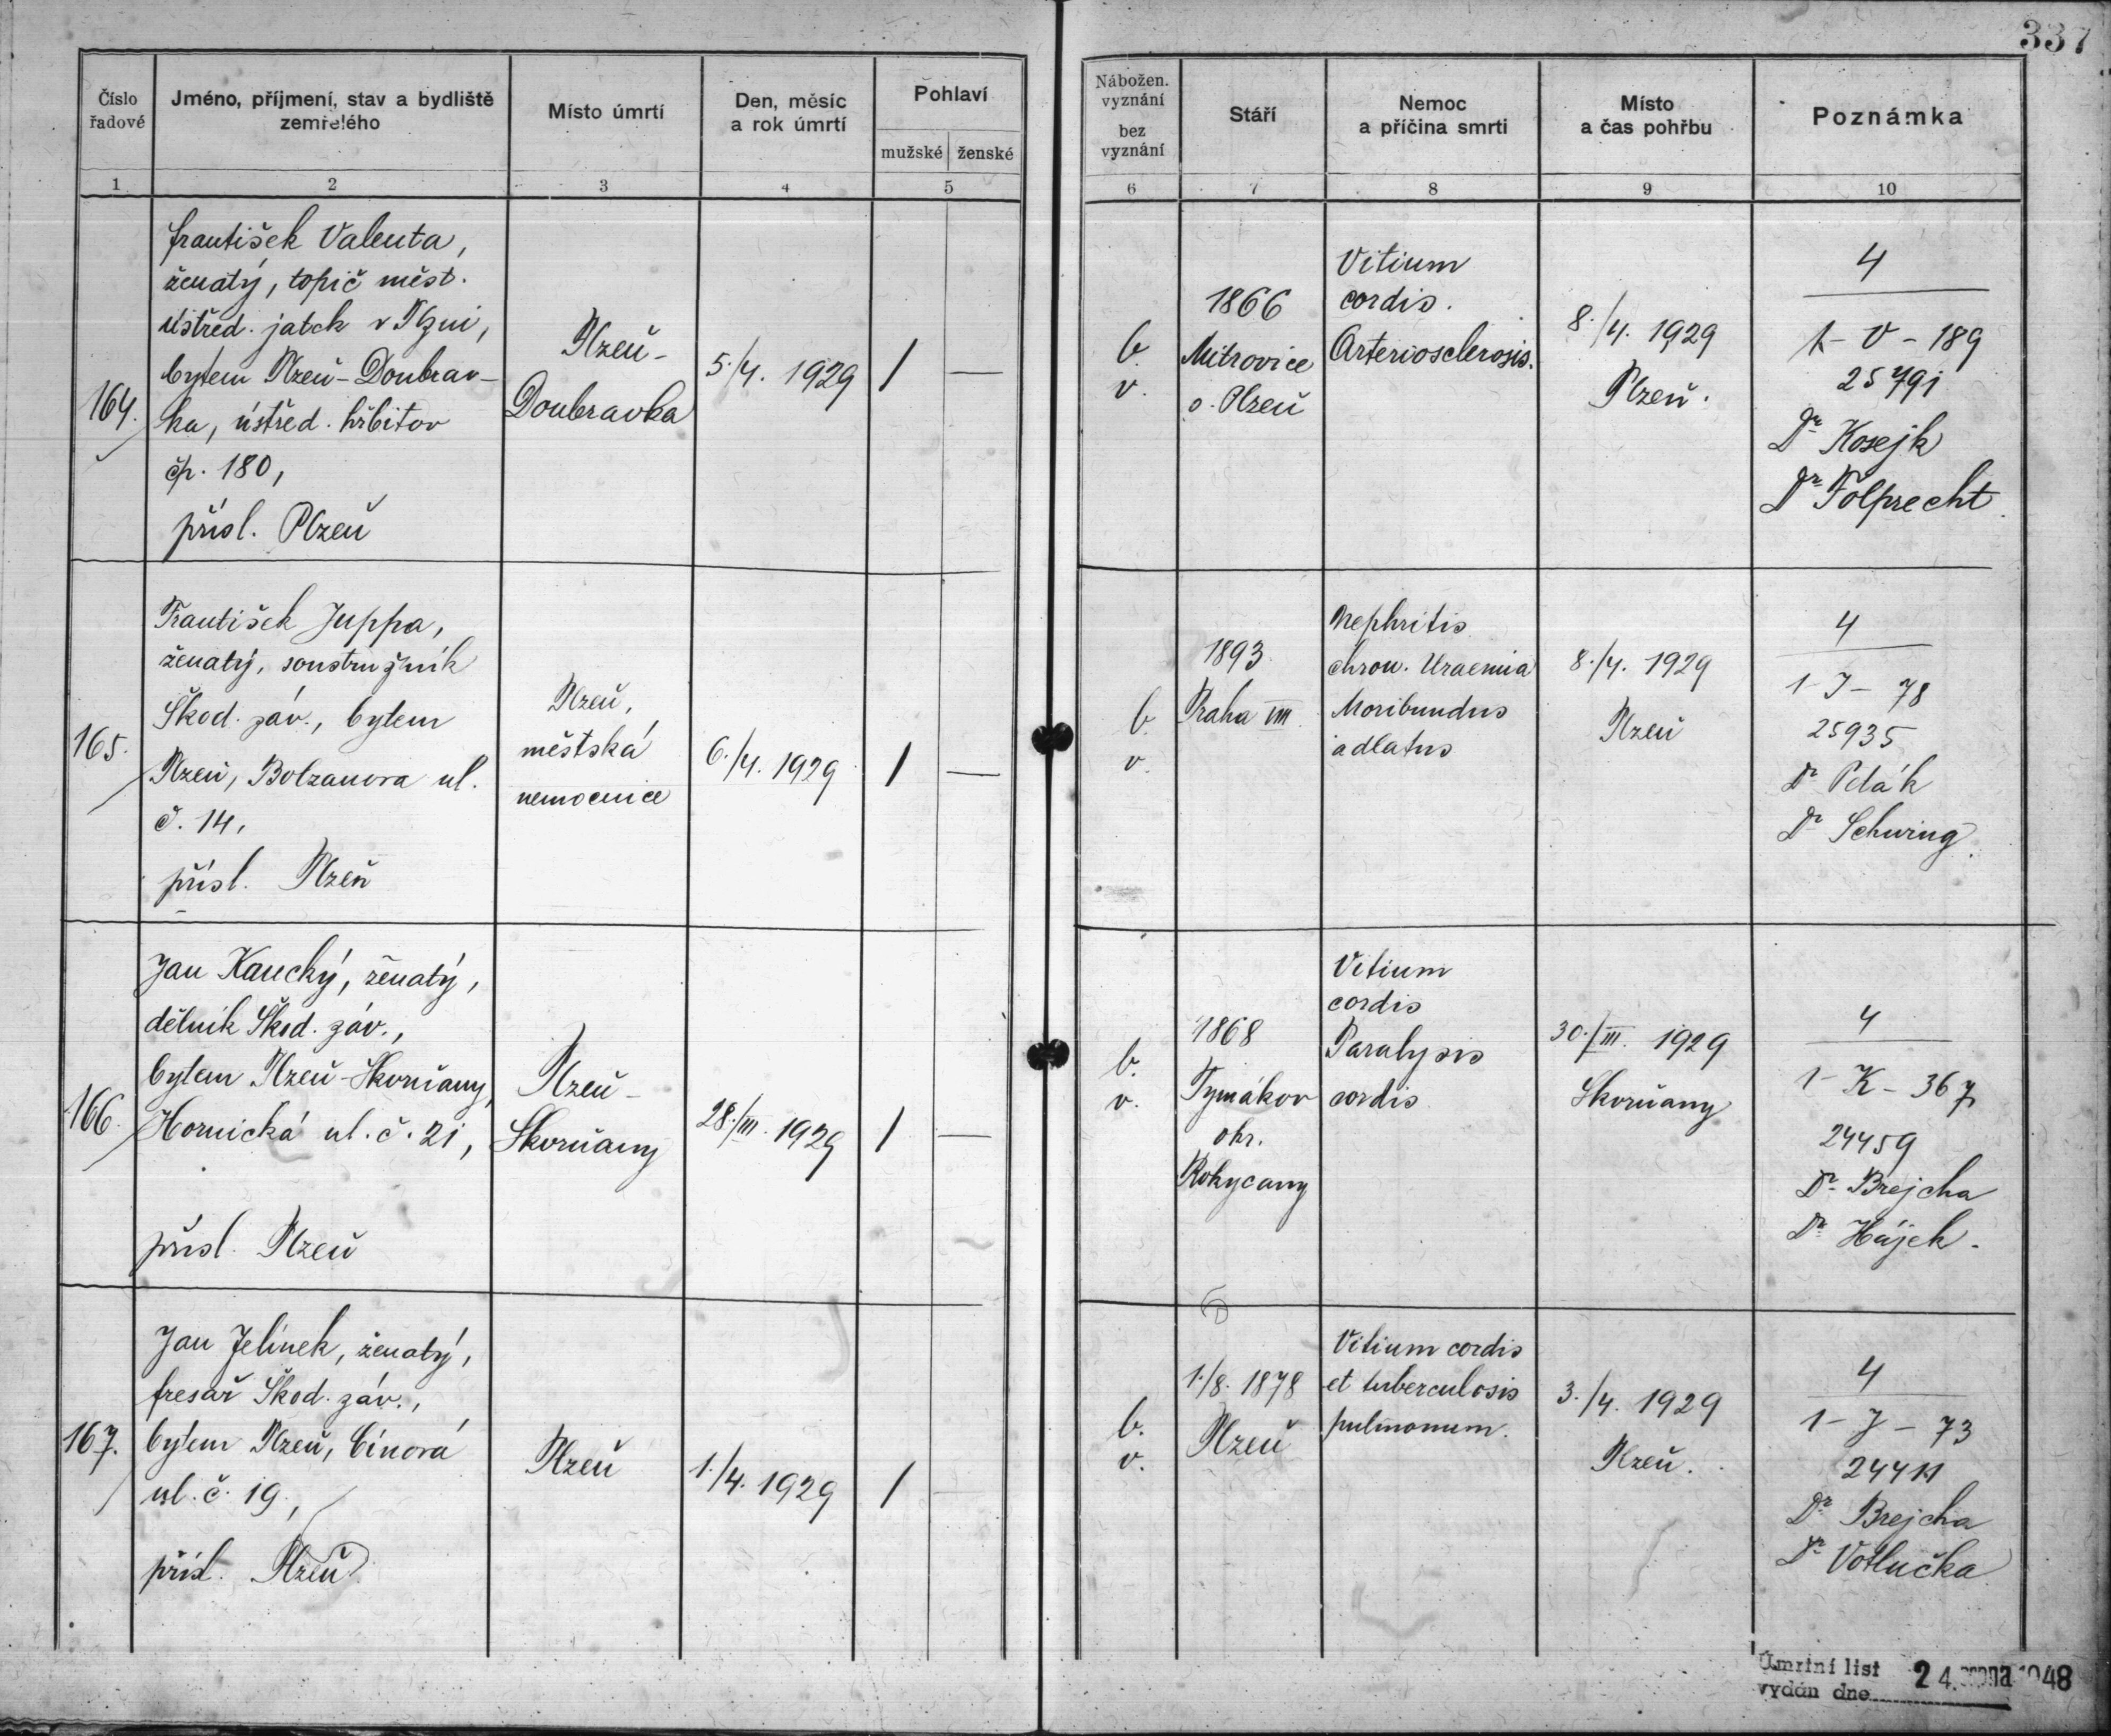 337
Číslo řadové
Jméno, příjmení, stav a bydliště zemřelého
Místo úmrtí
Den, měsíc a rok úmrtí
Pohlaví
mužské
ženské
Nábožen. vyznání
bez vyznání
Stáří
Nemoc a příčina smrti
Místo a čas pohřbu
Poznámka
1
2
3
4
5
6
7
8
9
10
164.
František Valenta,
ženatý, topič měst.
ústřed. jatek v Plzni,
bytem Plzeň-Doubrav-
ka, ústřed. hřbitov
čp. 180,
přísl. Plzeň
Plzeň-
Doubravka
5./4. 1929
/
—
b.
v.
1866
Mitrovice
o. Plzeň
Vitium
cordis.
Arteriosclerosis.
8./4. 1929
Plzeň.
4
1-V-189
25791
Dr Kosejk
Dr Folprecht
165.
František Juppa,
ženatý, soustružník
Škod. záv., bytem
Plzeň, Bolzanova ul.
č. 14,
přísl. Plzeň
Plzeň,
městská
nemocnice
6./4. 1929
/
—
b.
v.
1893
Praha VIII
Nephritis
chron. Uraemia
Moribundus
adlatus
8./4. 1929
Plzeň
4
1-J-78
25935
Dr Peták
Dr Schwing.
166.
Jan Kaucký, ženatý,
dělník Škod. záv.,
bytem Plzeň-Skvrňany,
Hornická ul. č. 21,
přísl. Plzeň
Plzeň-
Skvrňany
28./III. 1929
/
—
b.
v.
1868
Tymákov
okr.
Rokycany
Vitium
cordis
Paralysis
cordis
30./III. 1929
Skvrňany
4
1-K-367
24459
Dr Brejcha
Dr Hájek.
167.
Jan Jelínek, ženatý,
fresař Škod. záv.,
bytem Plzeň, Cínová
ul. č. 19,
přísl. Plzeň
Plzeň
1./4. 1929
/
—
b.
v.
1./8. 1878
Plzeň
Vitium cordis
et tuberculosis
pulmonum.
3./4. 1929
Plzeň.
4
1-J-73
24411
Dr Brejcha
Dr Votlučka
Úmrtní list
vydán dne
24. 1948